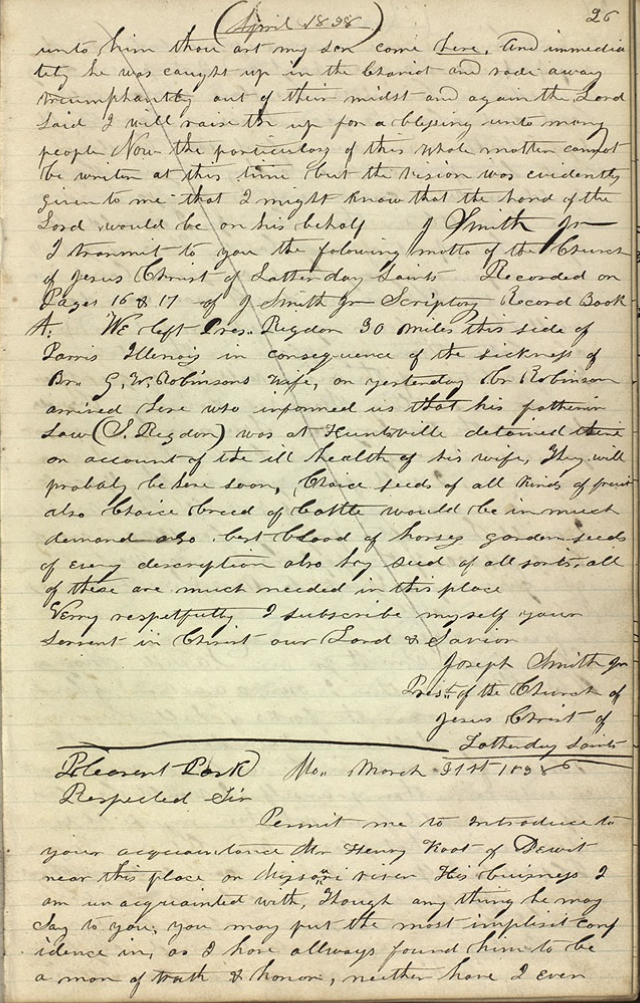 (April 1838)
26
unto him thou art my son come here, and immedia
tely he was caught up in the Chariot and rode away
triumphantly out of their midst and again the Lord
said I will raise the up for a blessing unto many
people Now the particulars of this whole matter cannot
be writen at this time but the vision was evidently
given to me that I might know that the hand of the
Lord would be on his behalf J Smith Jr
I transmit to you the folowing motto of the Church
of Jesus Christ of Latterday Saints Recorded on
Pages 16 & 17 of J Smith Jr Scriptory Record Book
A. We left Pres. Rigdon 30 miles this side of
Parris Illinois in consequence of the sickness of
Br. G. W. Robinsons wife, on yesterday Br Robinson
arrived here who informed us that his father in
Law (S. Rigdon) was at Huntsville detained there
on account of the ill health of his wife, They will
probaly be here soon, Choice seeds of all kinds of fruit
also Choice breed of Cattle would be in much
demand also best blood of horses garden seeds
of every description also hay seed of all sorts, all
of these are much needed in this place
Verry respectfully I subscribe myself your
servent in Christ our Lord & Savior
Joseph Smith Jr
Prest. of the Church of
Jesus Christ of
Latterday Saints
Pleasent Park Mo. March 31st 1838
Respected Sir
Permit me to introduce to
your acquaintance Mr Henry Root of Dewit
near this place on Missoni river His buisness I
am unacquainted with, Though any thing he may
say to you, you may put the most implisit conf
idence in, as I have allways found him to be
a man of truth & honor, neither have I ever